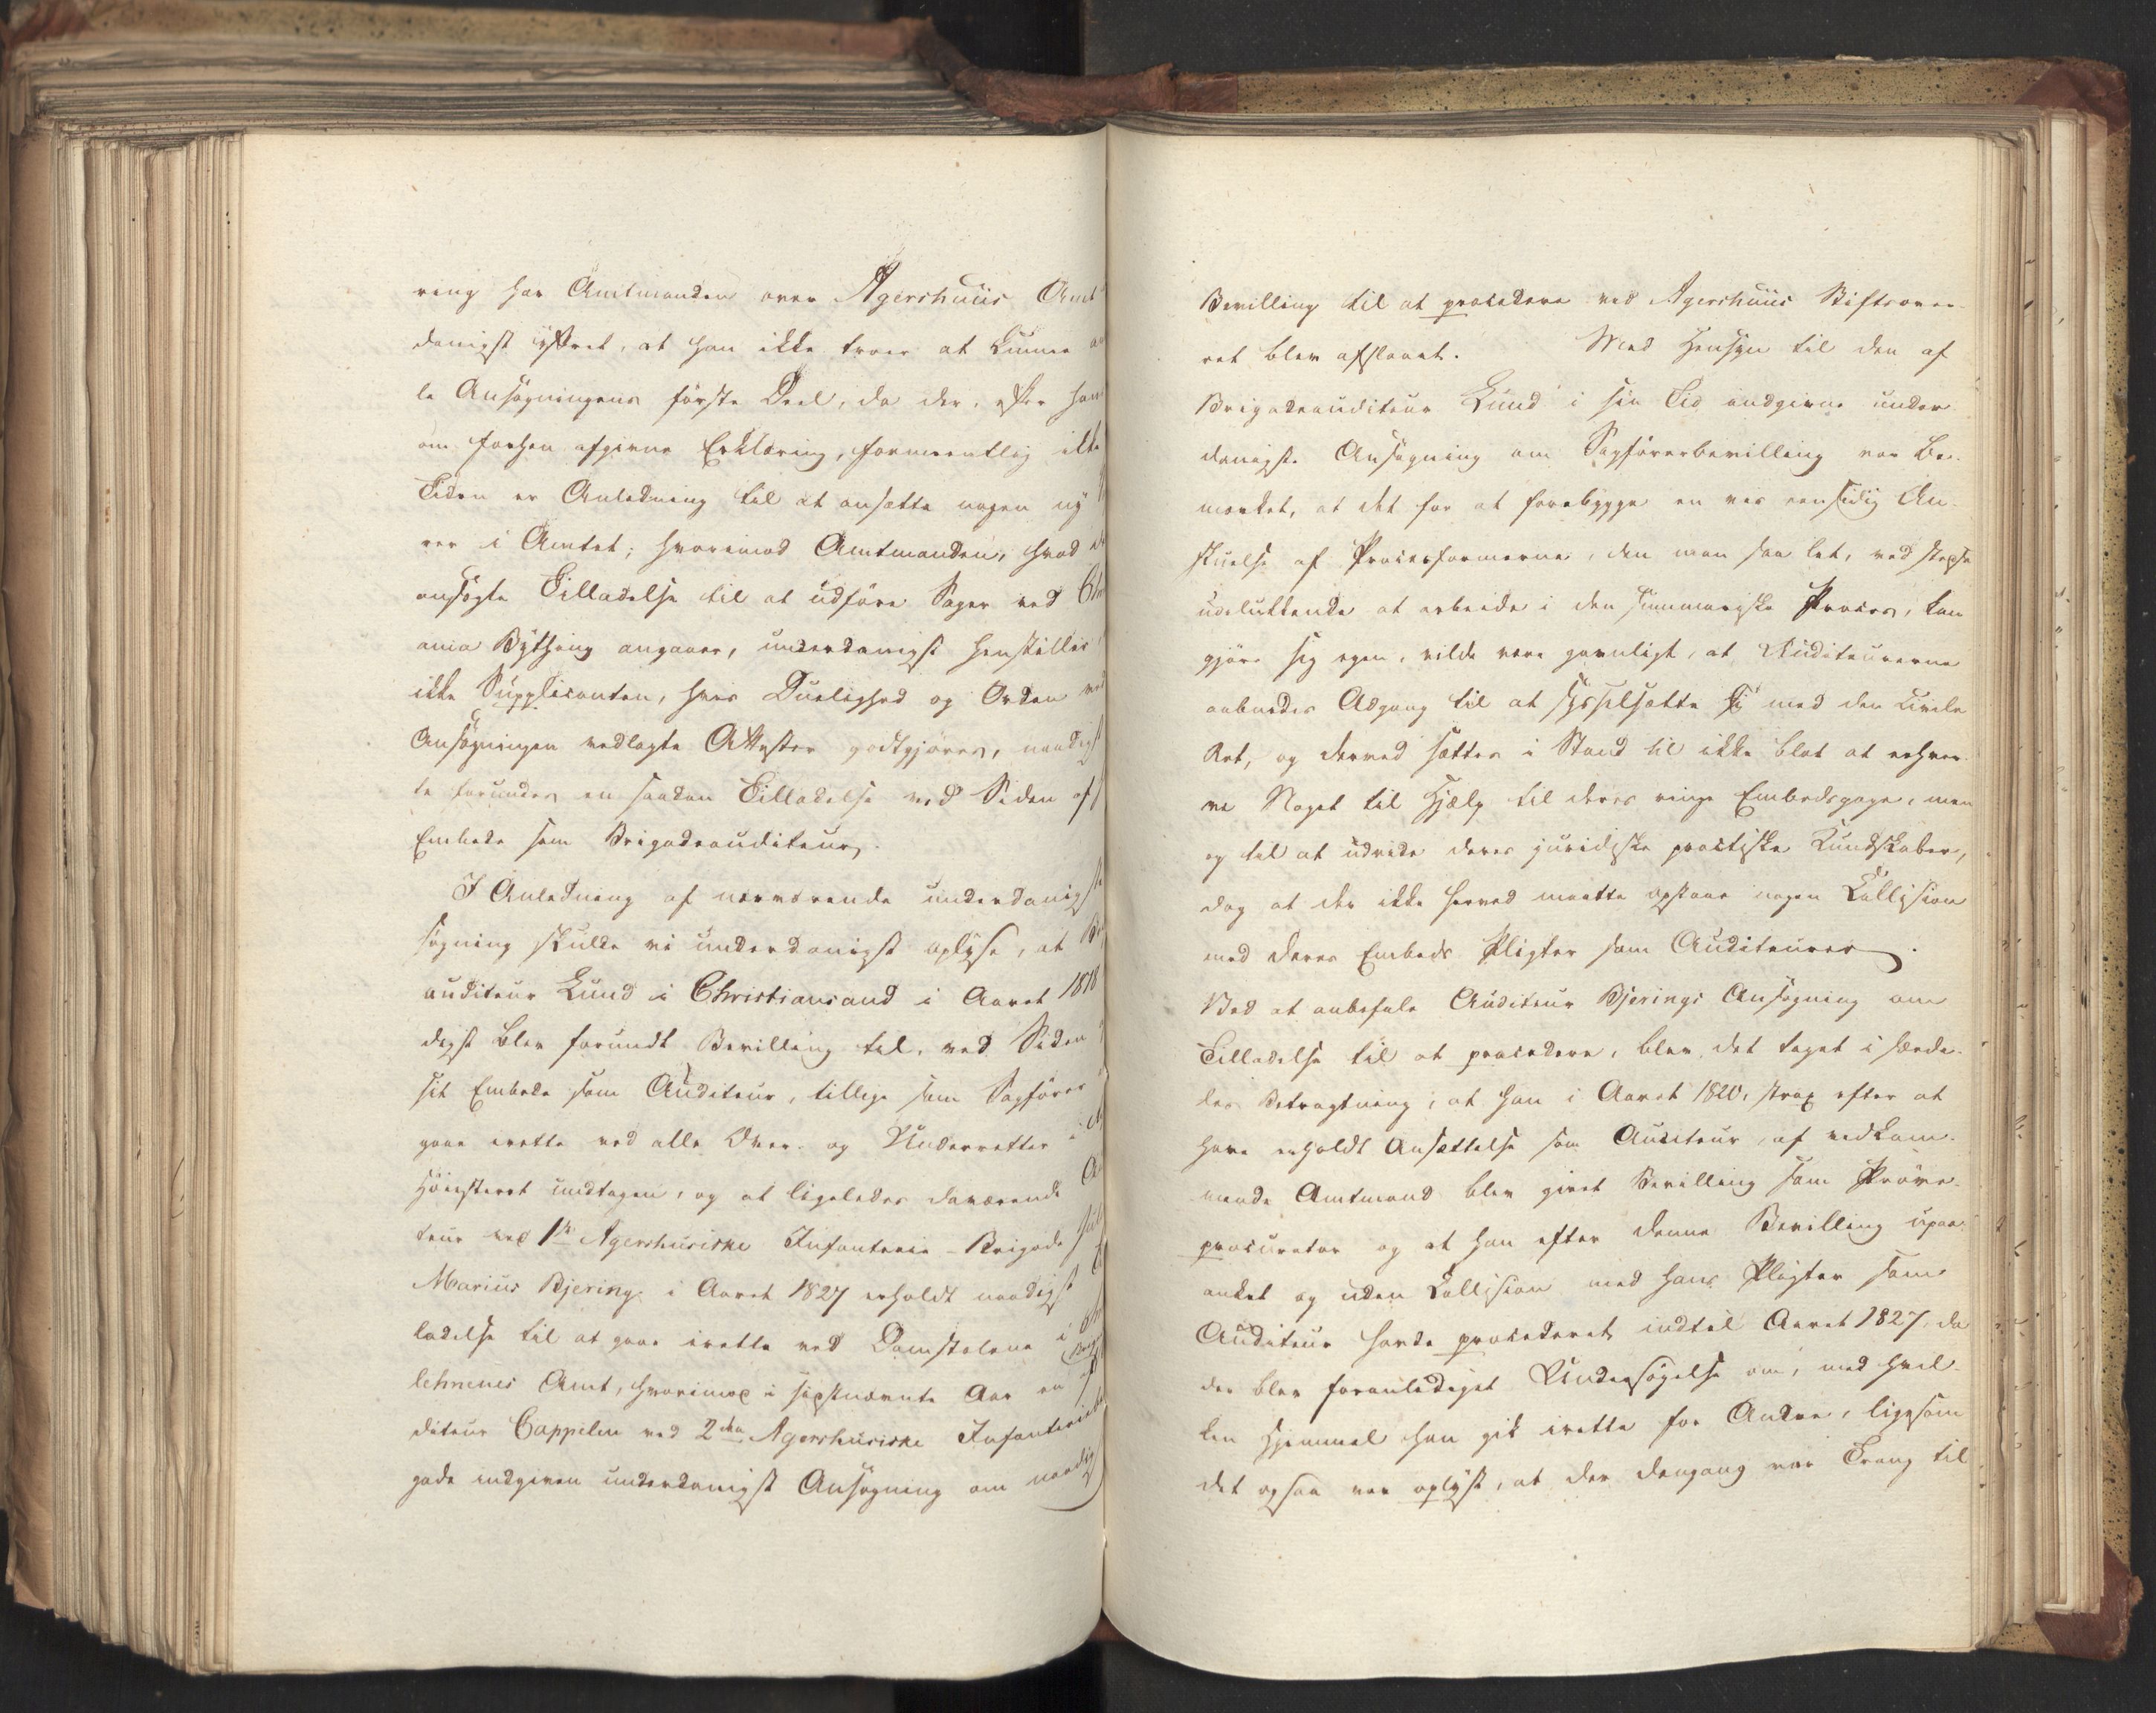 ring har Amtmanden over Agershuus Amt
danigst yttret, at han ikke troer at kunne
le Ansøgningens første Deel, da der, efter hans
om forhen afgivne Erklæring, formeentlig ikke
Tiden er Anledning til at ansætte nogen ny
rer i Amtet; hvorimod Amtmanden, hvad
ansøgte Tilladelse til at udføre Sager ved Chri
ania Bything angaaer, underdanigst henstiller
ikke Supplicanten, hvis Duelighed og Orden ved
Ansøgningen vedlagte Attester godtgjøres, naadigst
te forundes en saadan Tilladelse ved Siden af
Embede som Brigadeauditeur.
I Anledning af nærværende underdanigste
søgning skulle vi underdanigst oplyse, at
auditeur Lund i Christiansand i Aaret 1818
digst blev forundt Bevilling til, ved Siden
sit Embede som Auditeur, tillige som Sagfører
gaae irette ved alle Over- og Underretter
Høiesteret undtagen, og at ligeledes daværende
teur ved 1ste Agershusiske Infanterie-Brigade
Marius Bjering i Aaret 1827 erholdt naadigst
ladelse til at gaae irette ved Domstolene i
lehnenes Amt, hvorimod i sidstnævnte Aar en af
diteur Cappelen ved 2den Agershusiske Infanterie
gade indgiven underdanigst Ansøgning om naadigst
Bevilling til at procedere ved Agershuus Stiftsover-
ret blev afslaaet. Med Hensyn til den af
Brigadeauditeur Lund i sin Tid indgivne under
danigste Ansøgning om Sagførerbevilling var be-
mærket, at det for at forebygge en vis eensidig An-
skuelse af Procesformerne, den man saa let, ved stedse
udelukkende at arbeide i den summariske Proces, kan
gjøre sig egen, vilde være gavnligt, at Auditeurerne
aabnedes Adgang til at sysselsætte sig med den civile
Ret, og derved sættes i Stand til ikke blot at erhver-
ve Noget til Hjælp til deres ringe Embedsgage, men
og til at udvide deres juridiske practiske Kundskaber,
dog at der ikke herved maatte opstaae nogen Collision
med deres Embeds Pligter som Auditeurer.
Ved at anbefale Auditeur Bjerings Ansøgning om
Tilladelse til at procedere, blev det taget i særde-
les Betragtning, at han i Aaret 1820, strax efter at
have erholdt Ansættelse som Auditeur, af vedkom-
mende Amtmand blev givet Bevilling som Prøve-
procurator og at han efter denne Bevilling upaa-
anket og uden Collision med hans Pligter som
Auditeur havde procederet indtil Aaret 1827, da
der blev foranlediget Undersøgelse om, med hvil-
ken Hjemmel han gik irette for Andre, ligesom
det ogsaa var oplyst, at der dengang var Trang til